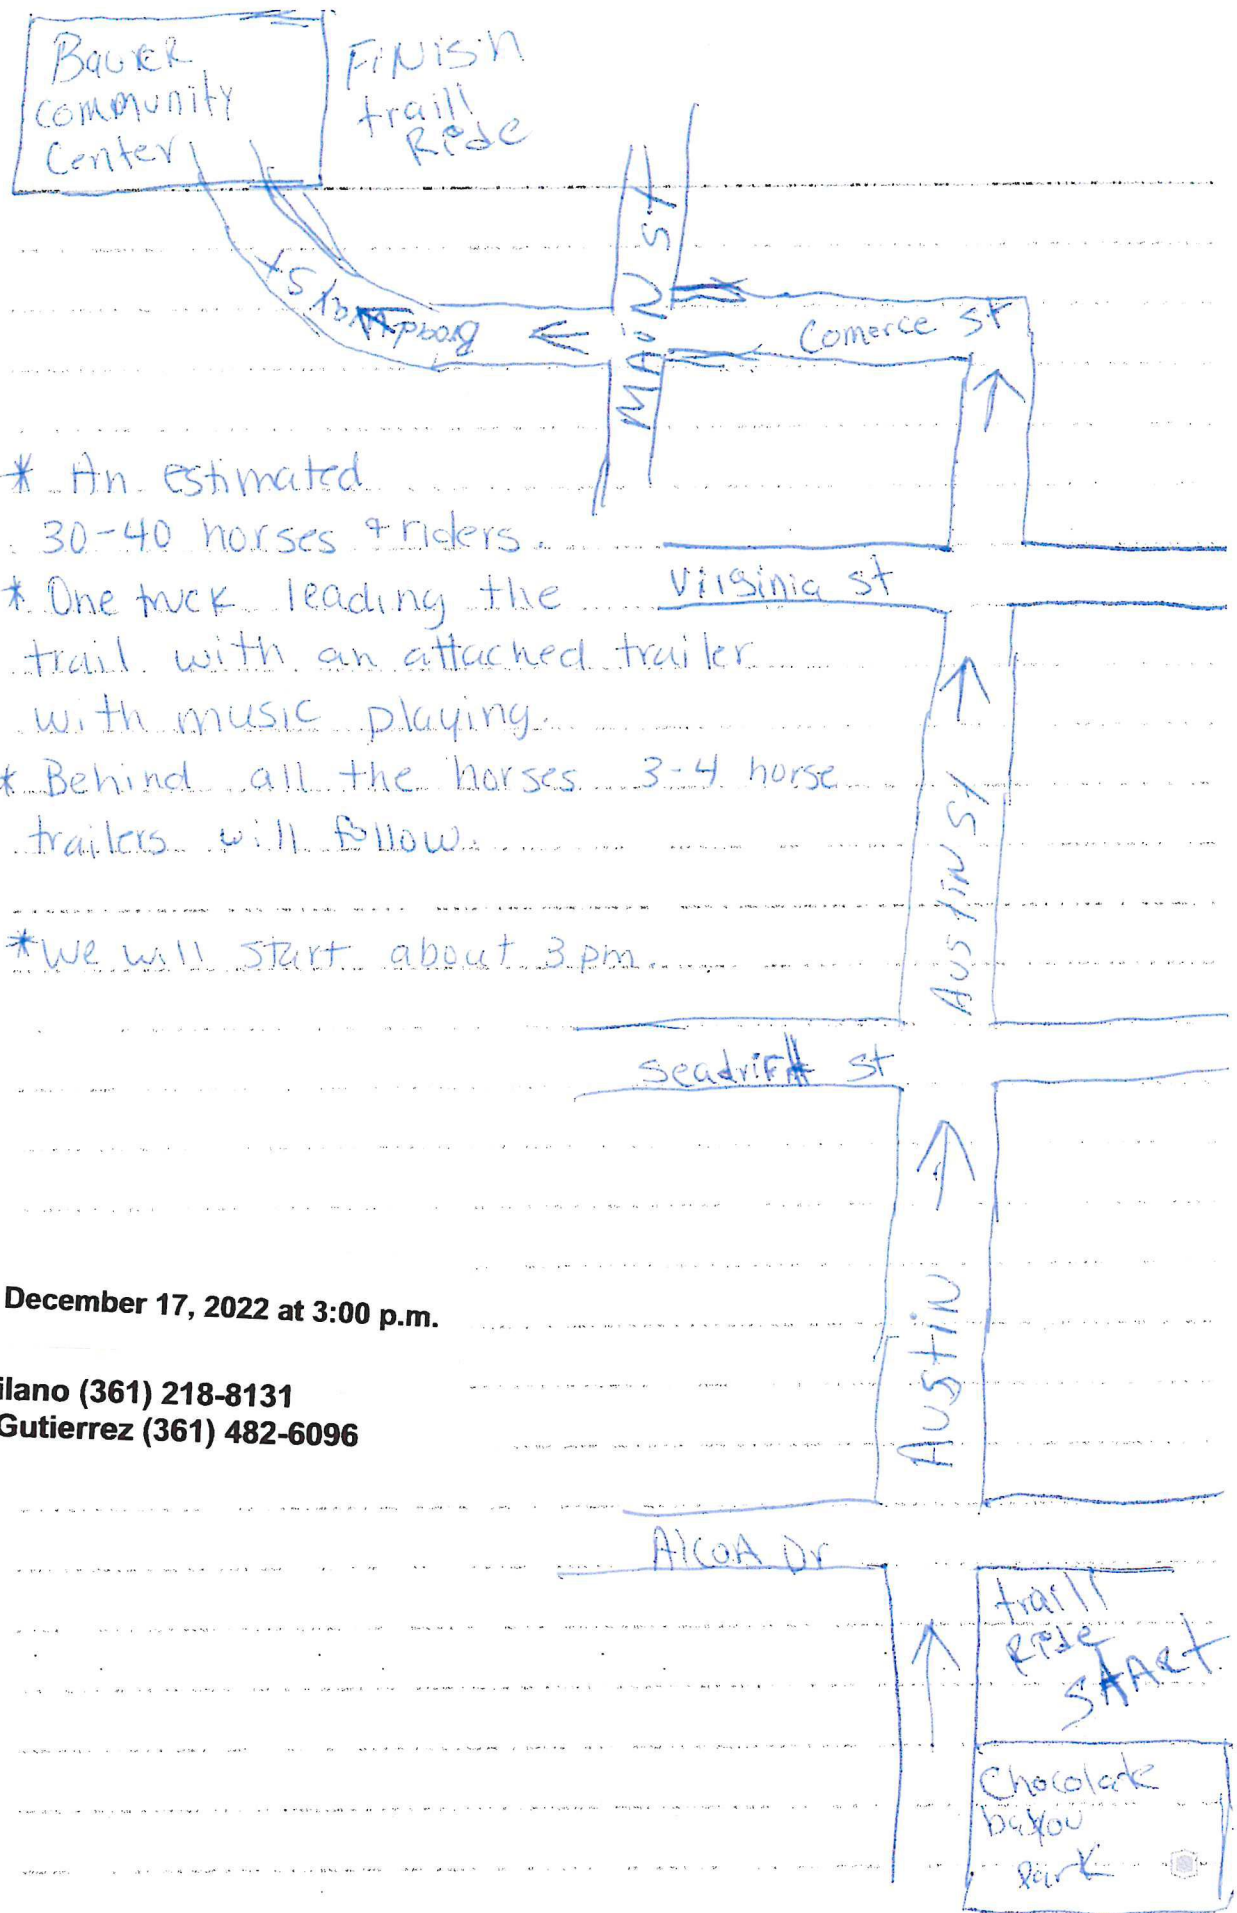 Bauer
community
Center
FiNish
traill
Ride
MAiN ST
Comerce St
Broadway St
* An estimated
30-40 horses & riders.
* One truck leading the
trail with an attached trailer
with music playing.
* Behind all the horses 3-4 horse
trailers will follow.
* We will start about 3 pm.
Virginia st
AUSTIN ST
Seadrift st
December 17, 2022 at 3:00 p.m.
ilano (361) 218-8131
Gutierrez (361) 482-6096
AUSTIN
AlcoA Dr
traill
Ride
StARt
Chocolate
bayou
park